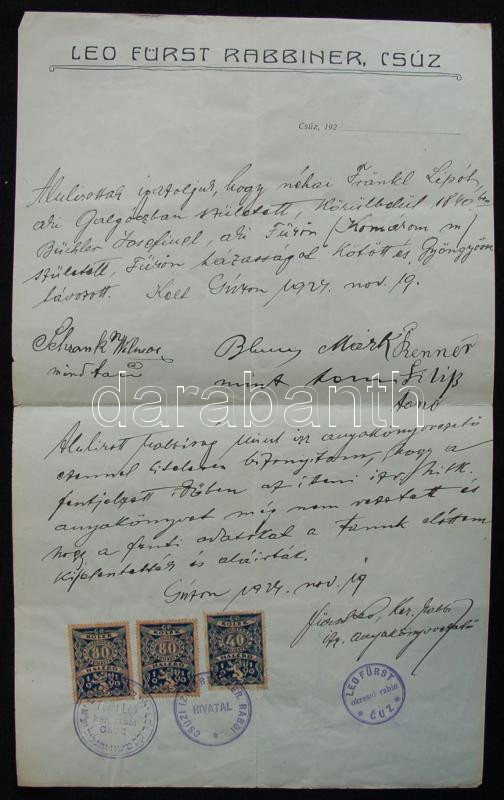 LEO FÜRST RABBINER, CSÚZ
Csúz, 192
Alulirottak igazoljuk, hogy néhai Fränkl Lipót,
aki Galgóczban született, Körülbelül 1840
Büchler Josefinel, aki Fürön (Komárom m)
született, Fürön házasságot kötött és Gyöngyösre
távozott. Kelt Csúzon 1924. nov. 19.
Schrank Vilmos
mint tanú
Blum Márk
mint tanu
Renner
Filip
tanú
Alulirott hatóság mint izr. anyakönyvvezető
ezennel hitelesen bizonyitom, hogy a
fentjelzett időben az itteni izr. hitk.
anyakönyvet még nem vezetett és
hogy a fenti adatokat a tanuk előttem
kijelentették és aláirták.
Csúzon 1924. nov. 19
Fürst Leo, Ker. rabbi
izr. anyakönyvvezető
KOLEK
80
HALÉŘŮ
KOLEK
80
HALÉŘŮ
KOLEK
40
HALÉŘŮ
Fürst Leó
ker. rabbi
CSÚZ
HIVATAL
LEO FÜRST
okresní rabín
CÚZ
darabanth